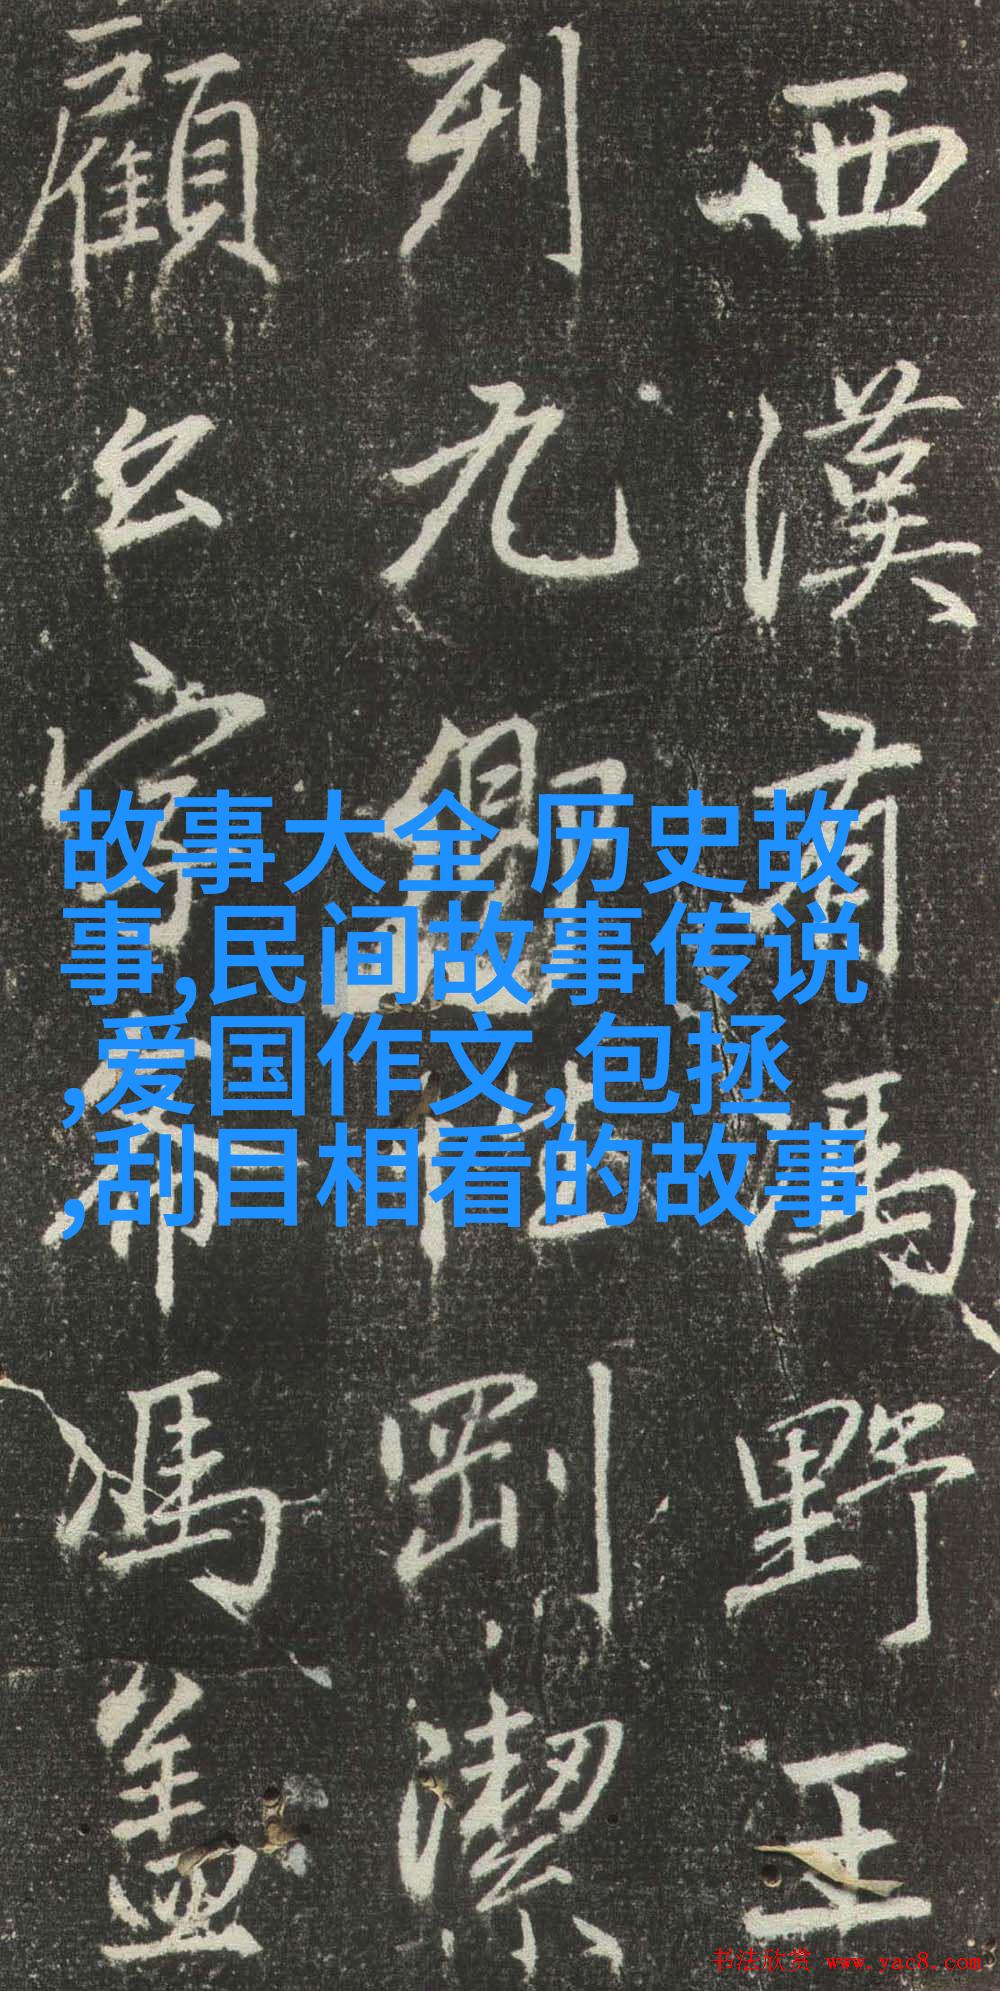 西漢有馮野王
列九剛潔
顧馮盖
故事大全 历史故
事,民间故事传说
,爱国作文,包拯
,刮目相看的故事
书法欣赏 www.yac8.com